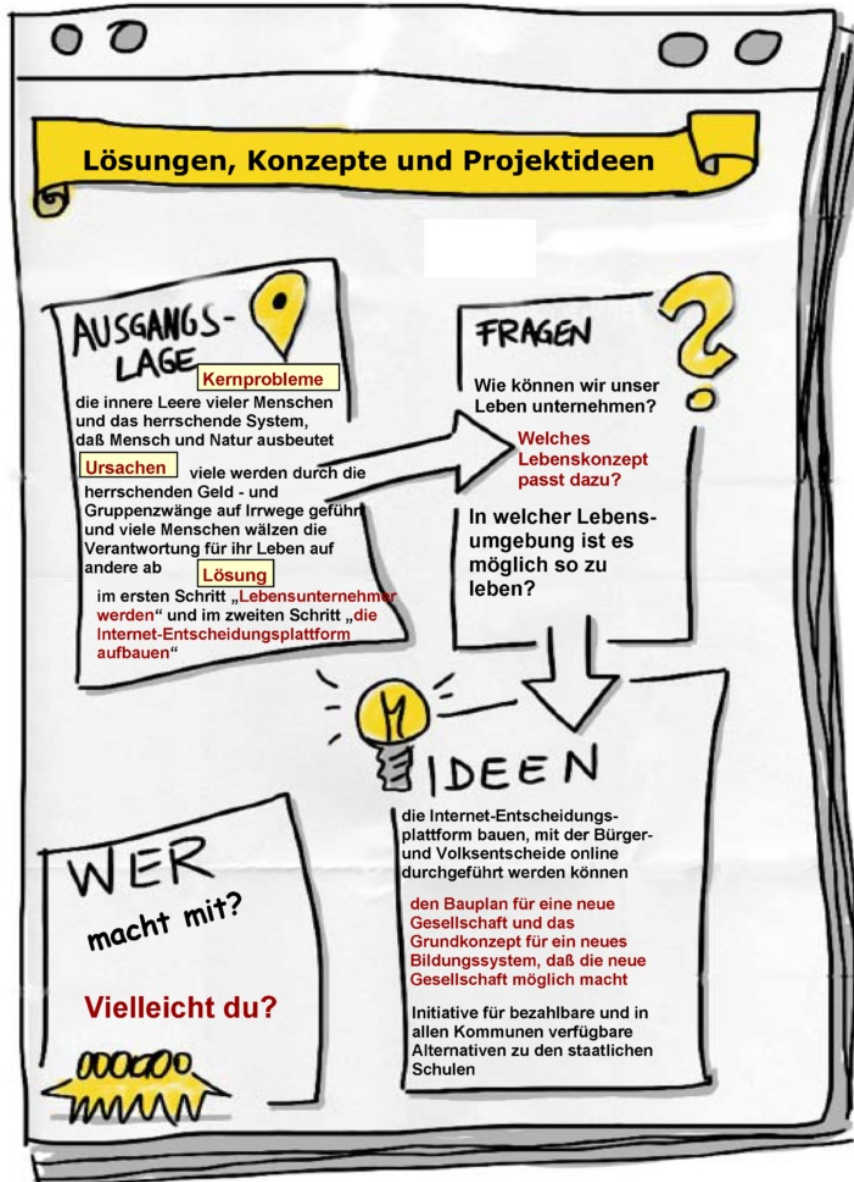 Lösungen, Konzepte und Projektideen
AUSGANGS-
LAGE
Kernprobleme
die innere Leere vieler Menschen
und das herrschende System,
daß Mensch und Natur ausbeutet
Ursachen viele werden durch die
herrschenden Geld - und
Gruppenzwänge auf Irrwege geführt
und viele Menschen wälzen die
Verantwortung für ihr Leben auf
andere ab
Lösung
im ersten Schritt „Lebensunternehmer
werden“ und im zweiten Schritt „die
Internet-Entscheidungsplattform
aufbauen“
FRAGEN
?
Wie können wir unser
Leben unternehmen?
Welches
Lebenskonzept
passt dazu?
In welcher Lebens-
umgebung ist es
möglich so zu
leben?
IDEEN
die Internet-Entscheidungs-
plattform bauen, mit der Bürger-
und Volksentscheide online
durchgeführt werden können
den Bauplan für eine neue
Gesellschaft und das
Grundkonzept für ein neues
Bildungssystem, daß die neue
Gesellschaft möglich macht
Initiative für bezahlbare und in
allen Kommunen verfügbare
Alternativen zu den staatlichen
Schulen
WER
macht mit?
Vielleicht du?